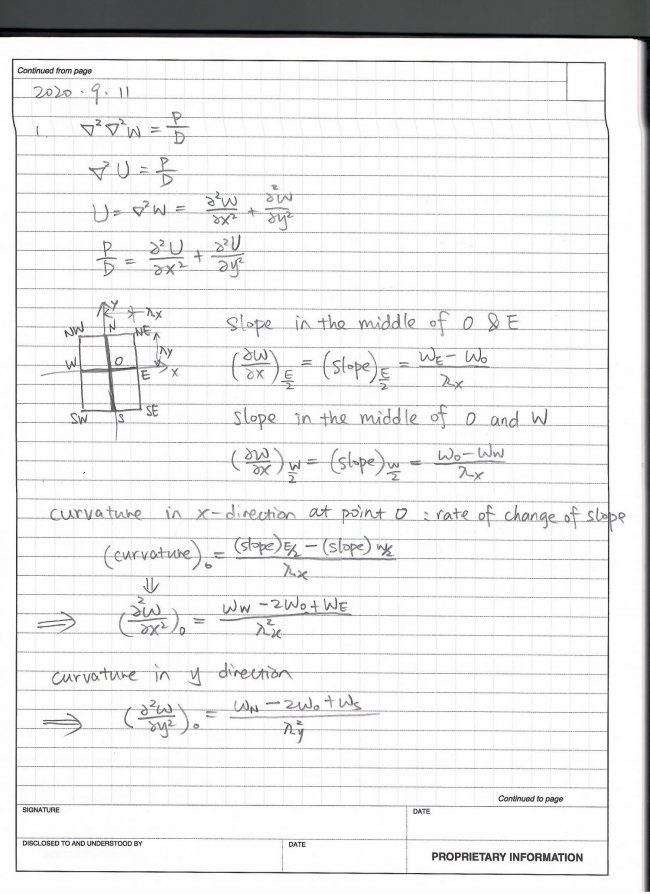 Continued from page
2020.9.11
1. ∇²∇²W = P/D
∇²U = P/D
U = ∇²W = ∂²W/∂x² + ∂²W/∂y²
P/D = ∂²U/∂x² + ∂²U/∂y²
y λx
NW N NE
λy
W O E x
SW S SE
Slope in the middle of O & E
(∂W/∂x)E/2 = (slope)E/2 = (WE - WO)/λx
slope in the middle of O and W
(∂W/∂x)W/2 = (slope)W/2 = (WO - WW)/λx
curvature in x-direction at point O : rate of change of slope
(curvature)o = ((slope)E/2 - (slope)W/2)/λx
⇓
⇒ (∂²W/∂x²)o = (WW - 2WO + WE)/λ²x
curvature in y direction
⇒ (∂²W/∂y²)o = (WN - 2WO + WS)/λ²y
Continued to page
SIGNATURE DATE
DISCLOSED TO AND UNDERSTOOD BY DATE
PROPRIETARY INFORMATION